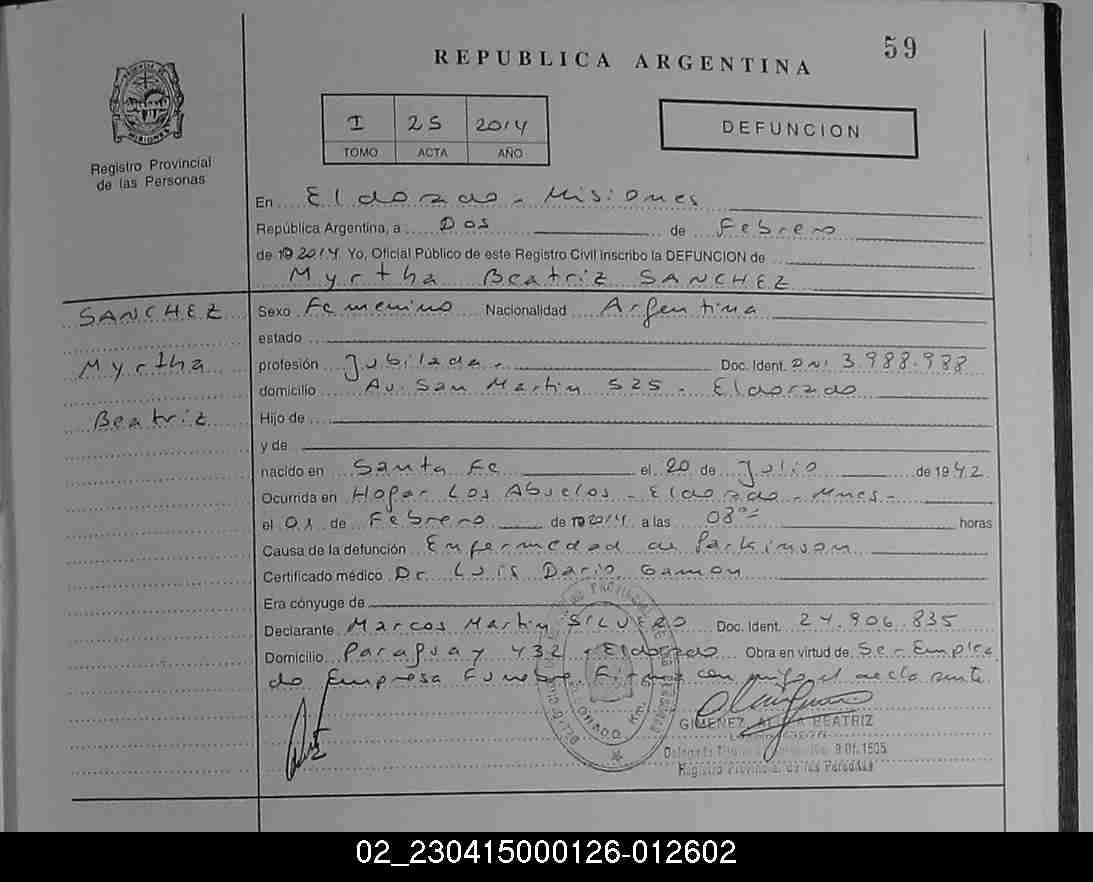 59
REPUBLICA ARGENTINA
MISIONES
Registro Provincial
de las Personas
I 25 2014
TOMO ACTA AÑO
DEFUNCION
En Eldorado - Misiones
República Argentina, a Dos de Febrero
de 19 2014 Yo, Oficial Público de este Registro Civil inscribo la DEFUNCION de
Myrtha Beatriz SANCHEZ
SANCHEZ
Myrtha
Beatriz
Sexo Femenino Nacionalidad Argentina
estado
profesión Jubilada - Doc. Ident. DNI 3.988.988
domicilio Av. San Martin 525 - Eldorado
Hijo de
y de
nacido en Santa Fe el 20 de Julio de 1942
Ocurrida en Hogar Los Abuelos - Eldorado - Mnes -
el 01 de Febrero de 19 2014 a las 08 horas
Causa de la defunción Enfermedad de Parkinson
Certificado médico Dr. Luis Dario Gamon
Era cónyuge de
Declarante Marcos Martin SILVERO Doc. Ident. 24.906.835
Domicilio Paraguay 432 - Eldorado Obra en virtud de Ser Emplea
do Empresa Funebre. Firma con migo el acto
GIMENEZ, BEATRIZ
Registro Provincial de las Personas
02_230415000126-012602